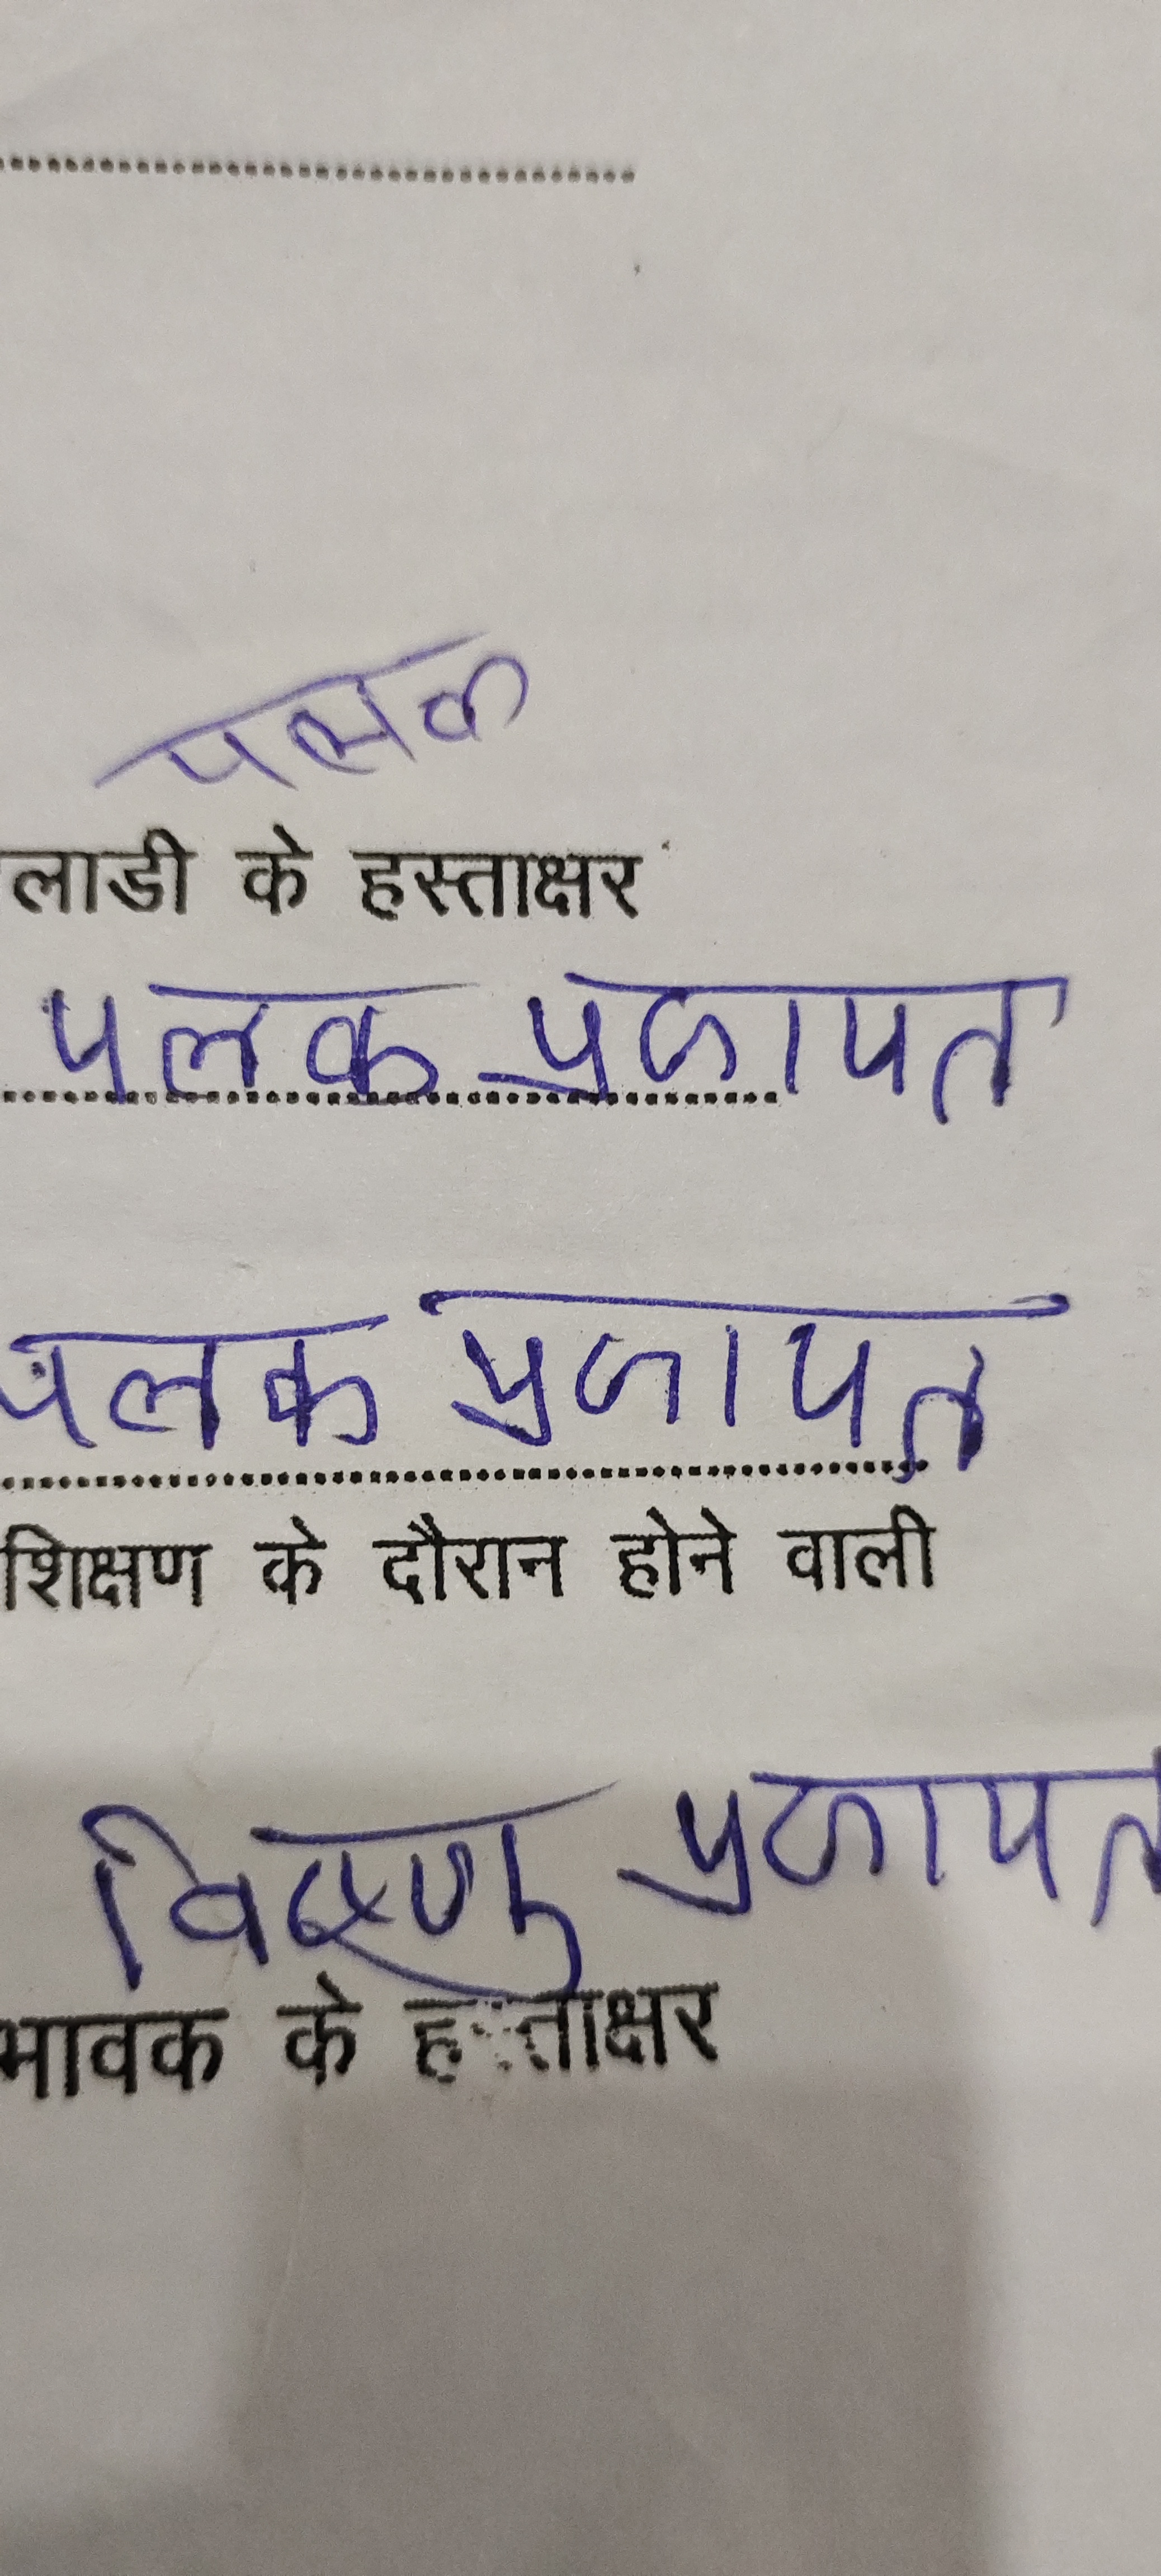 पलक
लाडी के हस्ताक्षर
पलक प्रजापत
पलक प्रजापत
शिक्षण के दौरान होने वाली
विष्णु प्रजापत
भावक के हस्ताक्षर